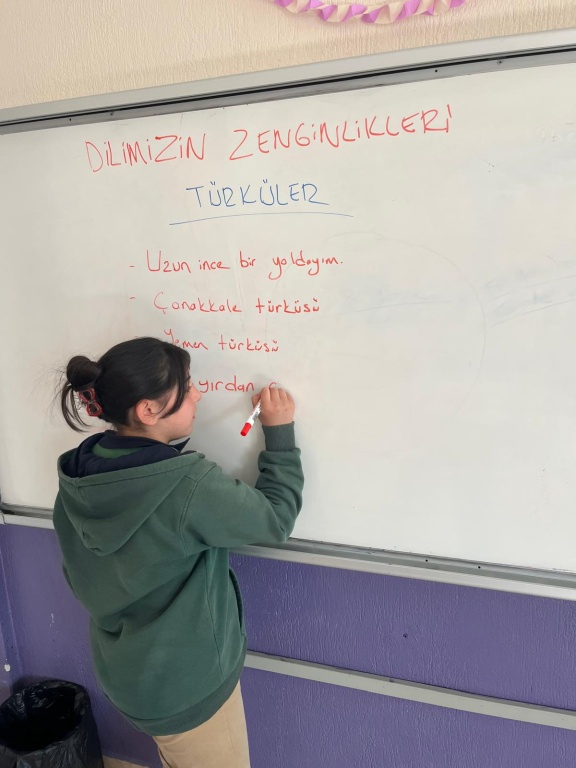 DİLİMİZİN ZENGİNLİKLERİ
TÜRKÜLER
- Uzun ince bir yoldayım.
- Çanakkale türküsü
Yemen türküsü